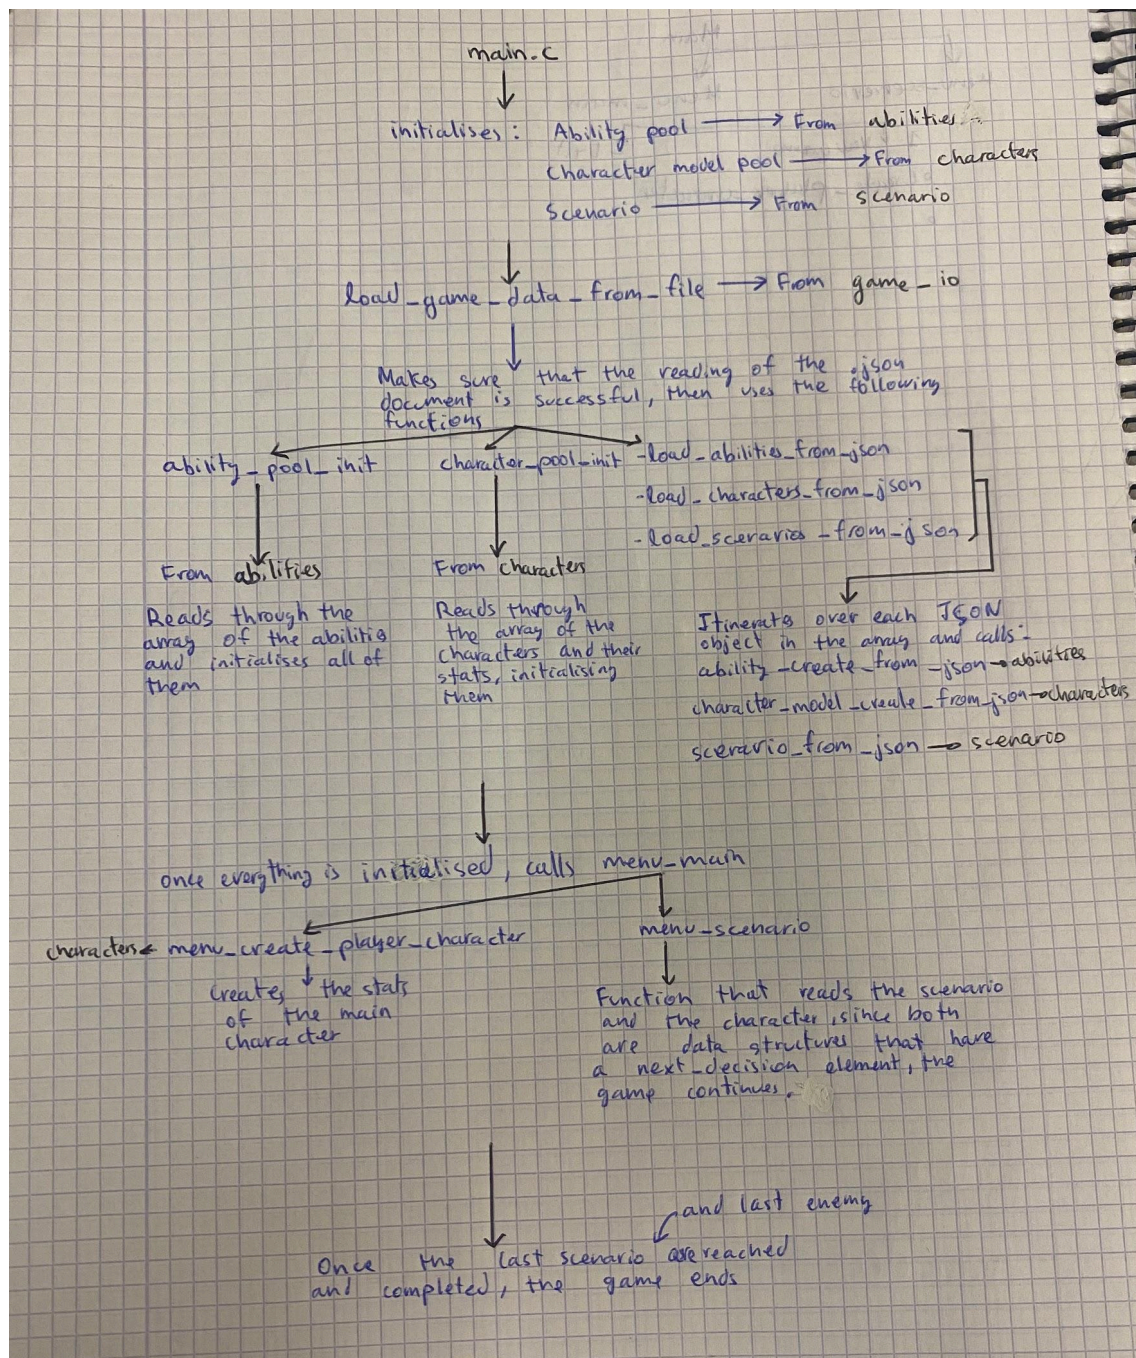 main.c
initialises: Ability pool → From abilities
Character model pool → From characters
Scenario → From scenario
load_game_data_from_file → From game_io
Makes sure that the reading of the .json
document is successful, then uses the following
functions
ability_pool_init
character_pool_init
-load_abilities_from_json
-load_characters_from_json
-load_scenarios_from_json
From abilities
Reads through the
array of the abilities
and initialises all of
them
From characters
Reads through
the array of the
characters and their
stats, initialising
them
Itinerates over each JSON
object in the array and calls:
ability_create_from_json → abilities
character_model_create_from_json → characters
scenario_from_json → scenario
once everything is initialised, calls menu_main
characters ← menu_create_player_character
menu_scenario
Creates the stats
of the main
character
Function that reads the scenario
and the character, since both
are data structures that have
a next_decision element, the
game continues.
and last enemy
Once the last scenario are reached
and completed, the game ends